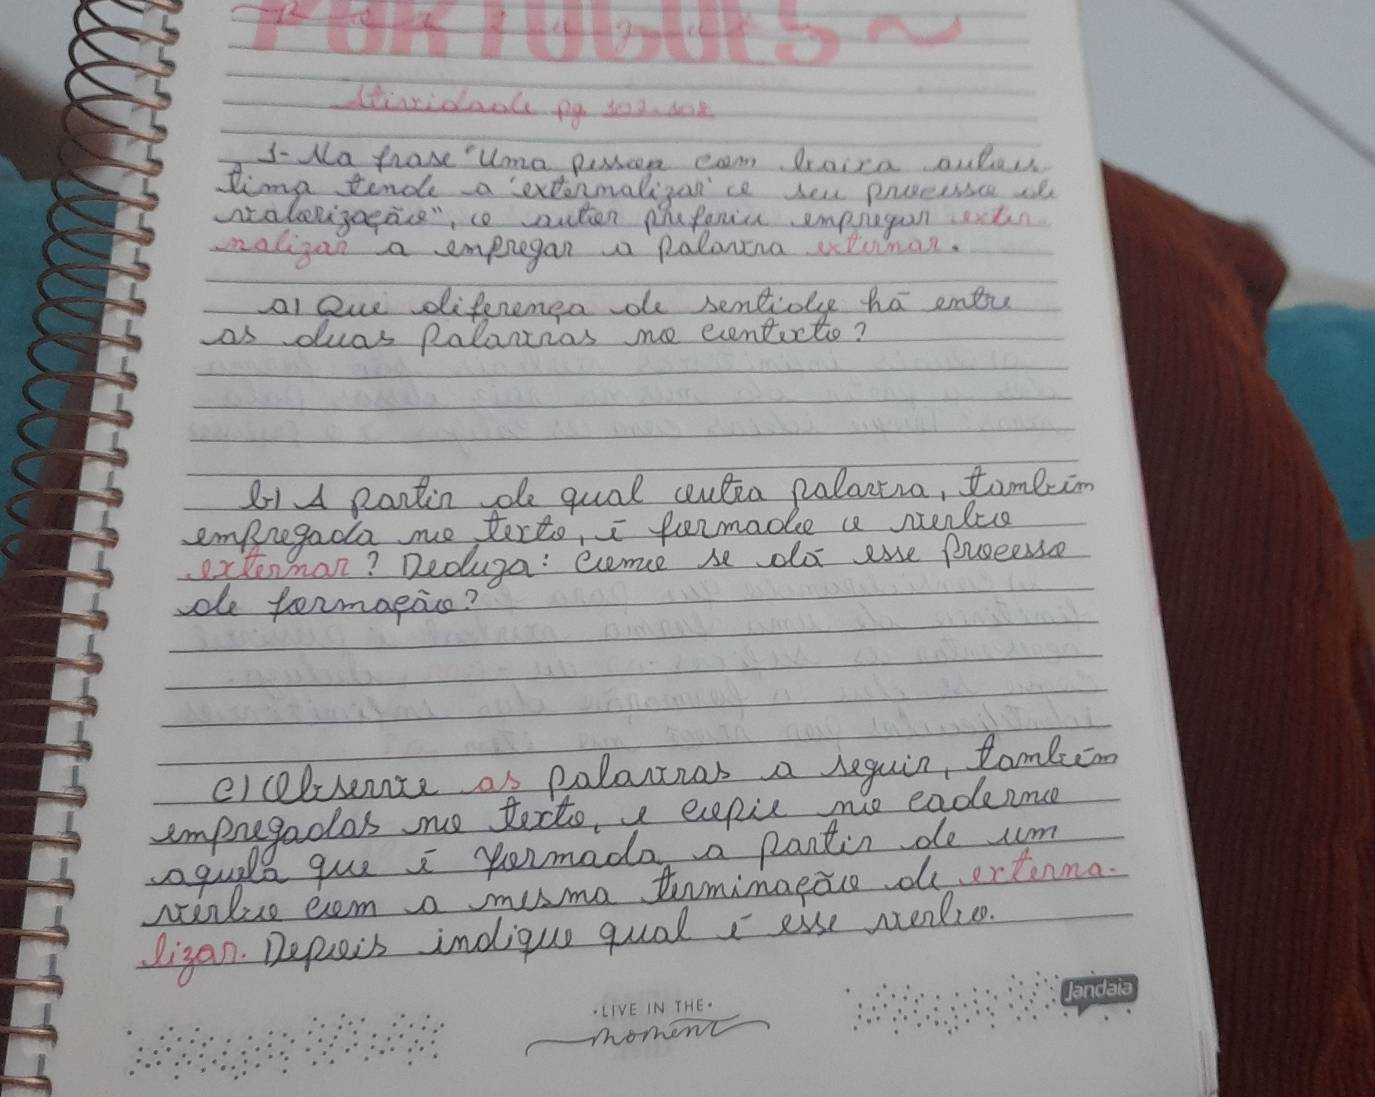 PORTUGUÊS ~
Atividade pg 107-108
1- Na frase "Uma pessoa com baixa autoes
tima tende a 'externalizar' o seu processo de
valorização", o autor preferiu empregar exter
nalizar a empregar a palavra externar.
a) Que diferença de sentido há entre
as duas palavras no contexto?
b) A partir de qual outra palavra, também
empregada no texto, é formado o verbo
externar? Deduza: Como se dá esse processo
de formação?
c) Observe as palavras a seguir, também
empregadas no texto, e copie no caderno
aquela que é formada a partir de um
verbo com a mesma terminação de externa-
lizar. Depois indique qual é esse verbo.
•LIVE IN THE•
moment
Jandaia